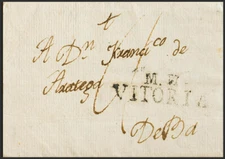 +
A Dn. Franco de
Aratega
M. N
VITORIA
Deba